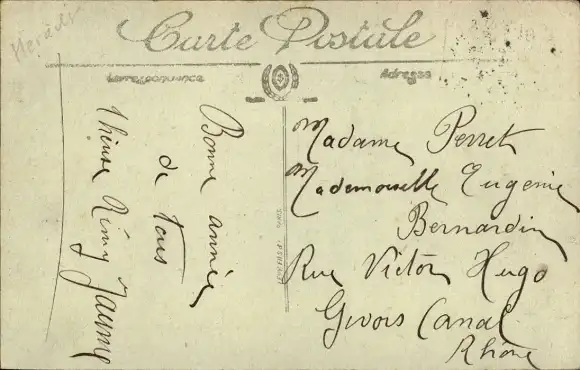 Carte Postale
Correspondance
Adresse
Bonne année
de tous
Rémy Jaume
Madame Perret
Mademoiselle Eugenie
Bernardin
Rue Victor Hugo
Givors Canal
Rhône